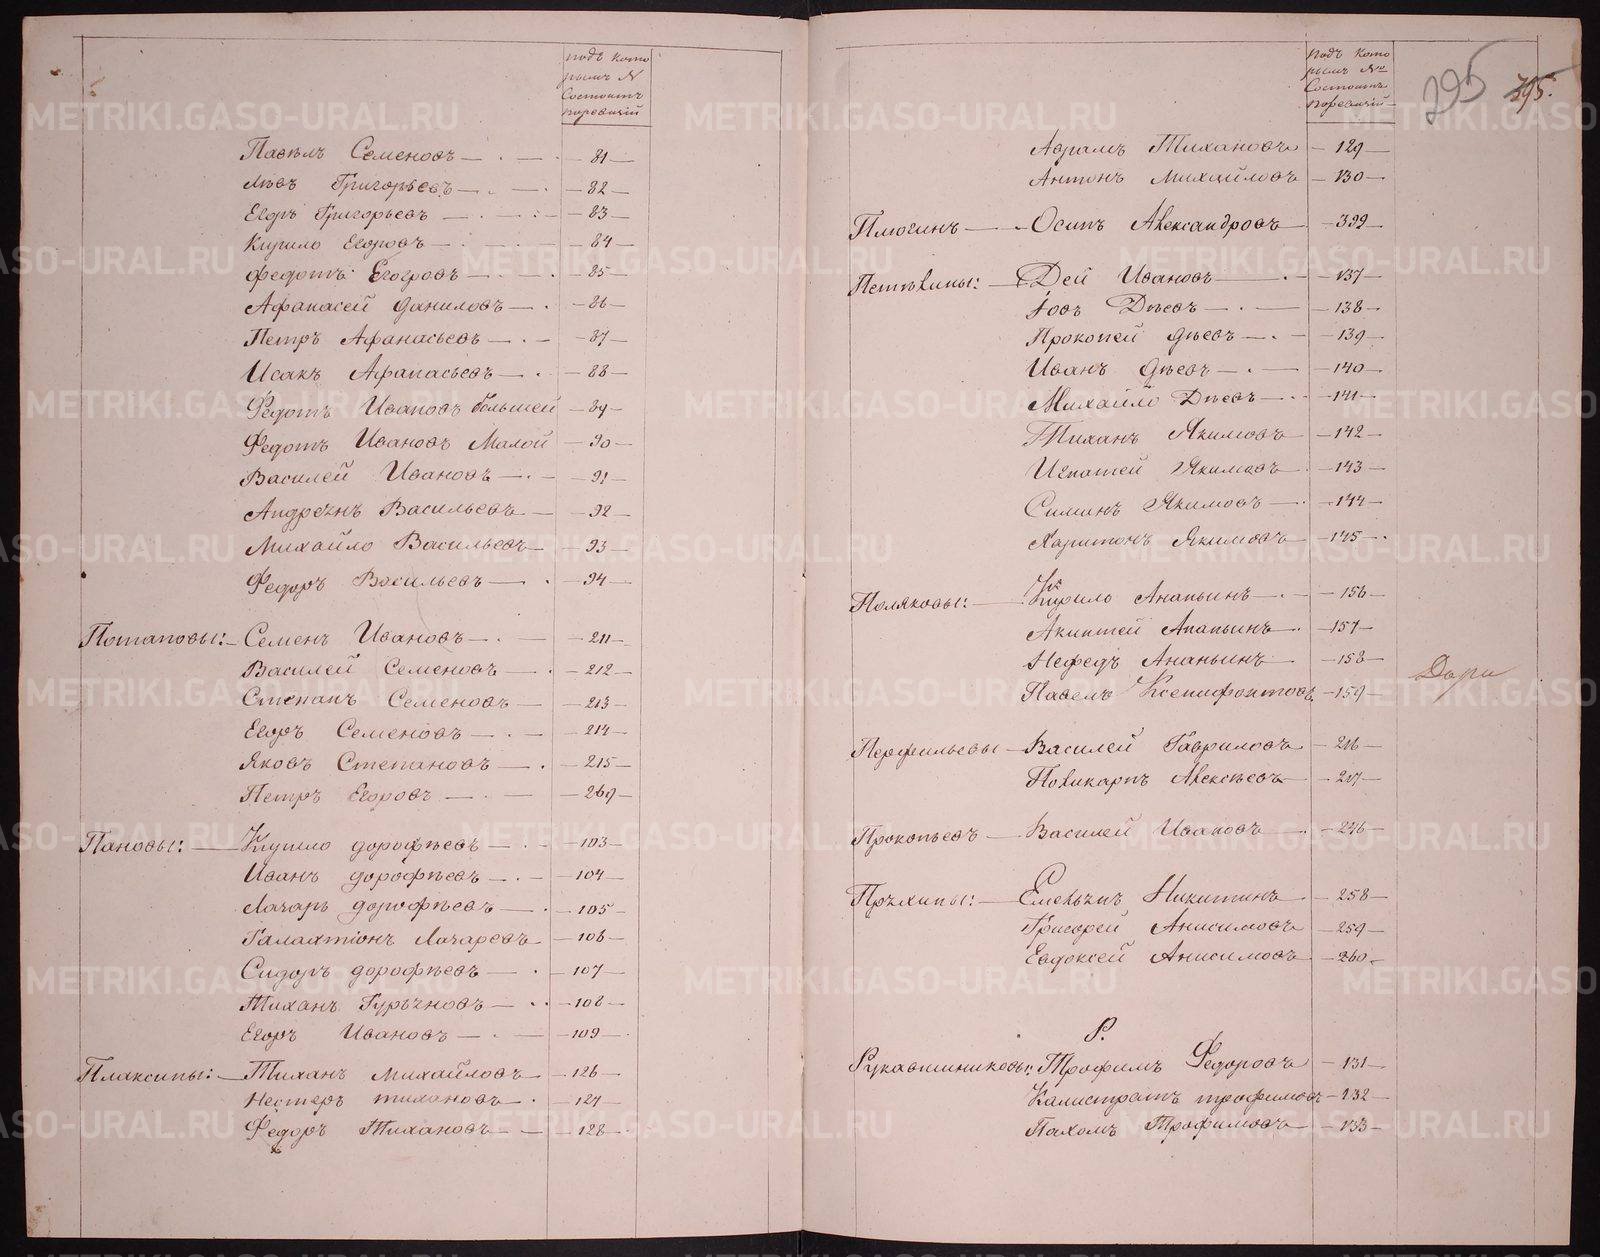 подъ кото
рымъ №
Состоитъ
поревизiи
Павѣлъ Семеновъ — 81 —
Лѣвъ Григорьевъ — 82 —
Егоръ Григорьевъ — 83 —
Кирило Егоровъ — 84 —
Федотъ Егоровъ — 85 —
Афанасей Даниловъ — 86 —
Петръ Афанасьевъ — 87 —
Исакъ Афанасьевъ — 88 —
Федотъ Ивановъ большей — 89 —
Федотъ Ивановъ Малой — 90 —
Василей Ивановъ — 91 —
Андреянъ Васильевъ — 92 —
Михайло Васильевъ — 93 —
Федоръ Васильевъ — 94 —
Потаповы: — Семенъ Ивановъ — 211 —
Василей Семеновъ — 212 —
Степанъ Семеновъ — 213 —
Егоръ Семеновъ — 214 —
Яковъ Степановъ — 215 —
Петръ Егоровъ — 269 —
Пановы: — Кирило дорофѣевъ — 103 —
Иванъ дорофѣевъ — 104 —
Лазарь дорофѣевъ — 105 —
Галахтiонъ Лазаревъ — 106 —
Сидоръ дорофѣевъ — 107 —
Тиханъ Гурьяновъ — 108 —
Егоръ Ивановъ — 109 —
Плаксины: — Тиханъ Михайловъ — 126 —
Нестеръ тихановъ — 127 —
Федоръ Тихановъ — 128 —
подъ кото
рымъ №
Состоитъ
поревизiй
295 395.
Абрамъ Тихановъ — 129 —
Антонъ Михайловъ — 130 —
Плюгинъ — Осипъ Александровъ — 399 —
Петѣлины: — Дей Ивановъ — 137 —
Iовъ Дѣевъ — 138 —
Прокопей Дѣевъ — 139 —
Иванъ Дѣевъ — 140 —
Михайло Дѣевъ — 141 —
Тиханъ Якимовъ — 142 —
Игнатей Якимовъ — 143 —
Симонъ Якимовъ — 144 —
Харитонъ Якимовъ — 145 —
Поляковы: — Кирило Ананьинъ — 156 —
Акинтей Ананьинъ — 157 —
Нефедъ Ананьинъ — 158 —
Павелъ Ксенифонтовъ — 159 —
Перфильевы — Василей Гавриловъ — 216 —
Поликарпъ Алексѣевъ — 217 —
Прокопьевъ — Василей Ивановъ — 246 —
Емельянъ Никитинъ — 258 —
Григорей Анисимовъ — 259 —
Евдокей Анисимовъ — 260 —
Р.
Рукавишниковы: Трофимъ Федоровъ — 131 —
Калистратъ трофимовъ — 132 —
Пахомъ Трофимовъ — 133 —
METRIKI.GASO-URAL.RU